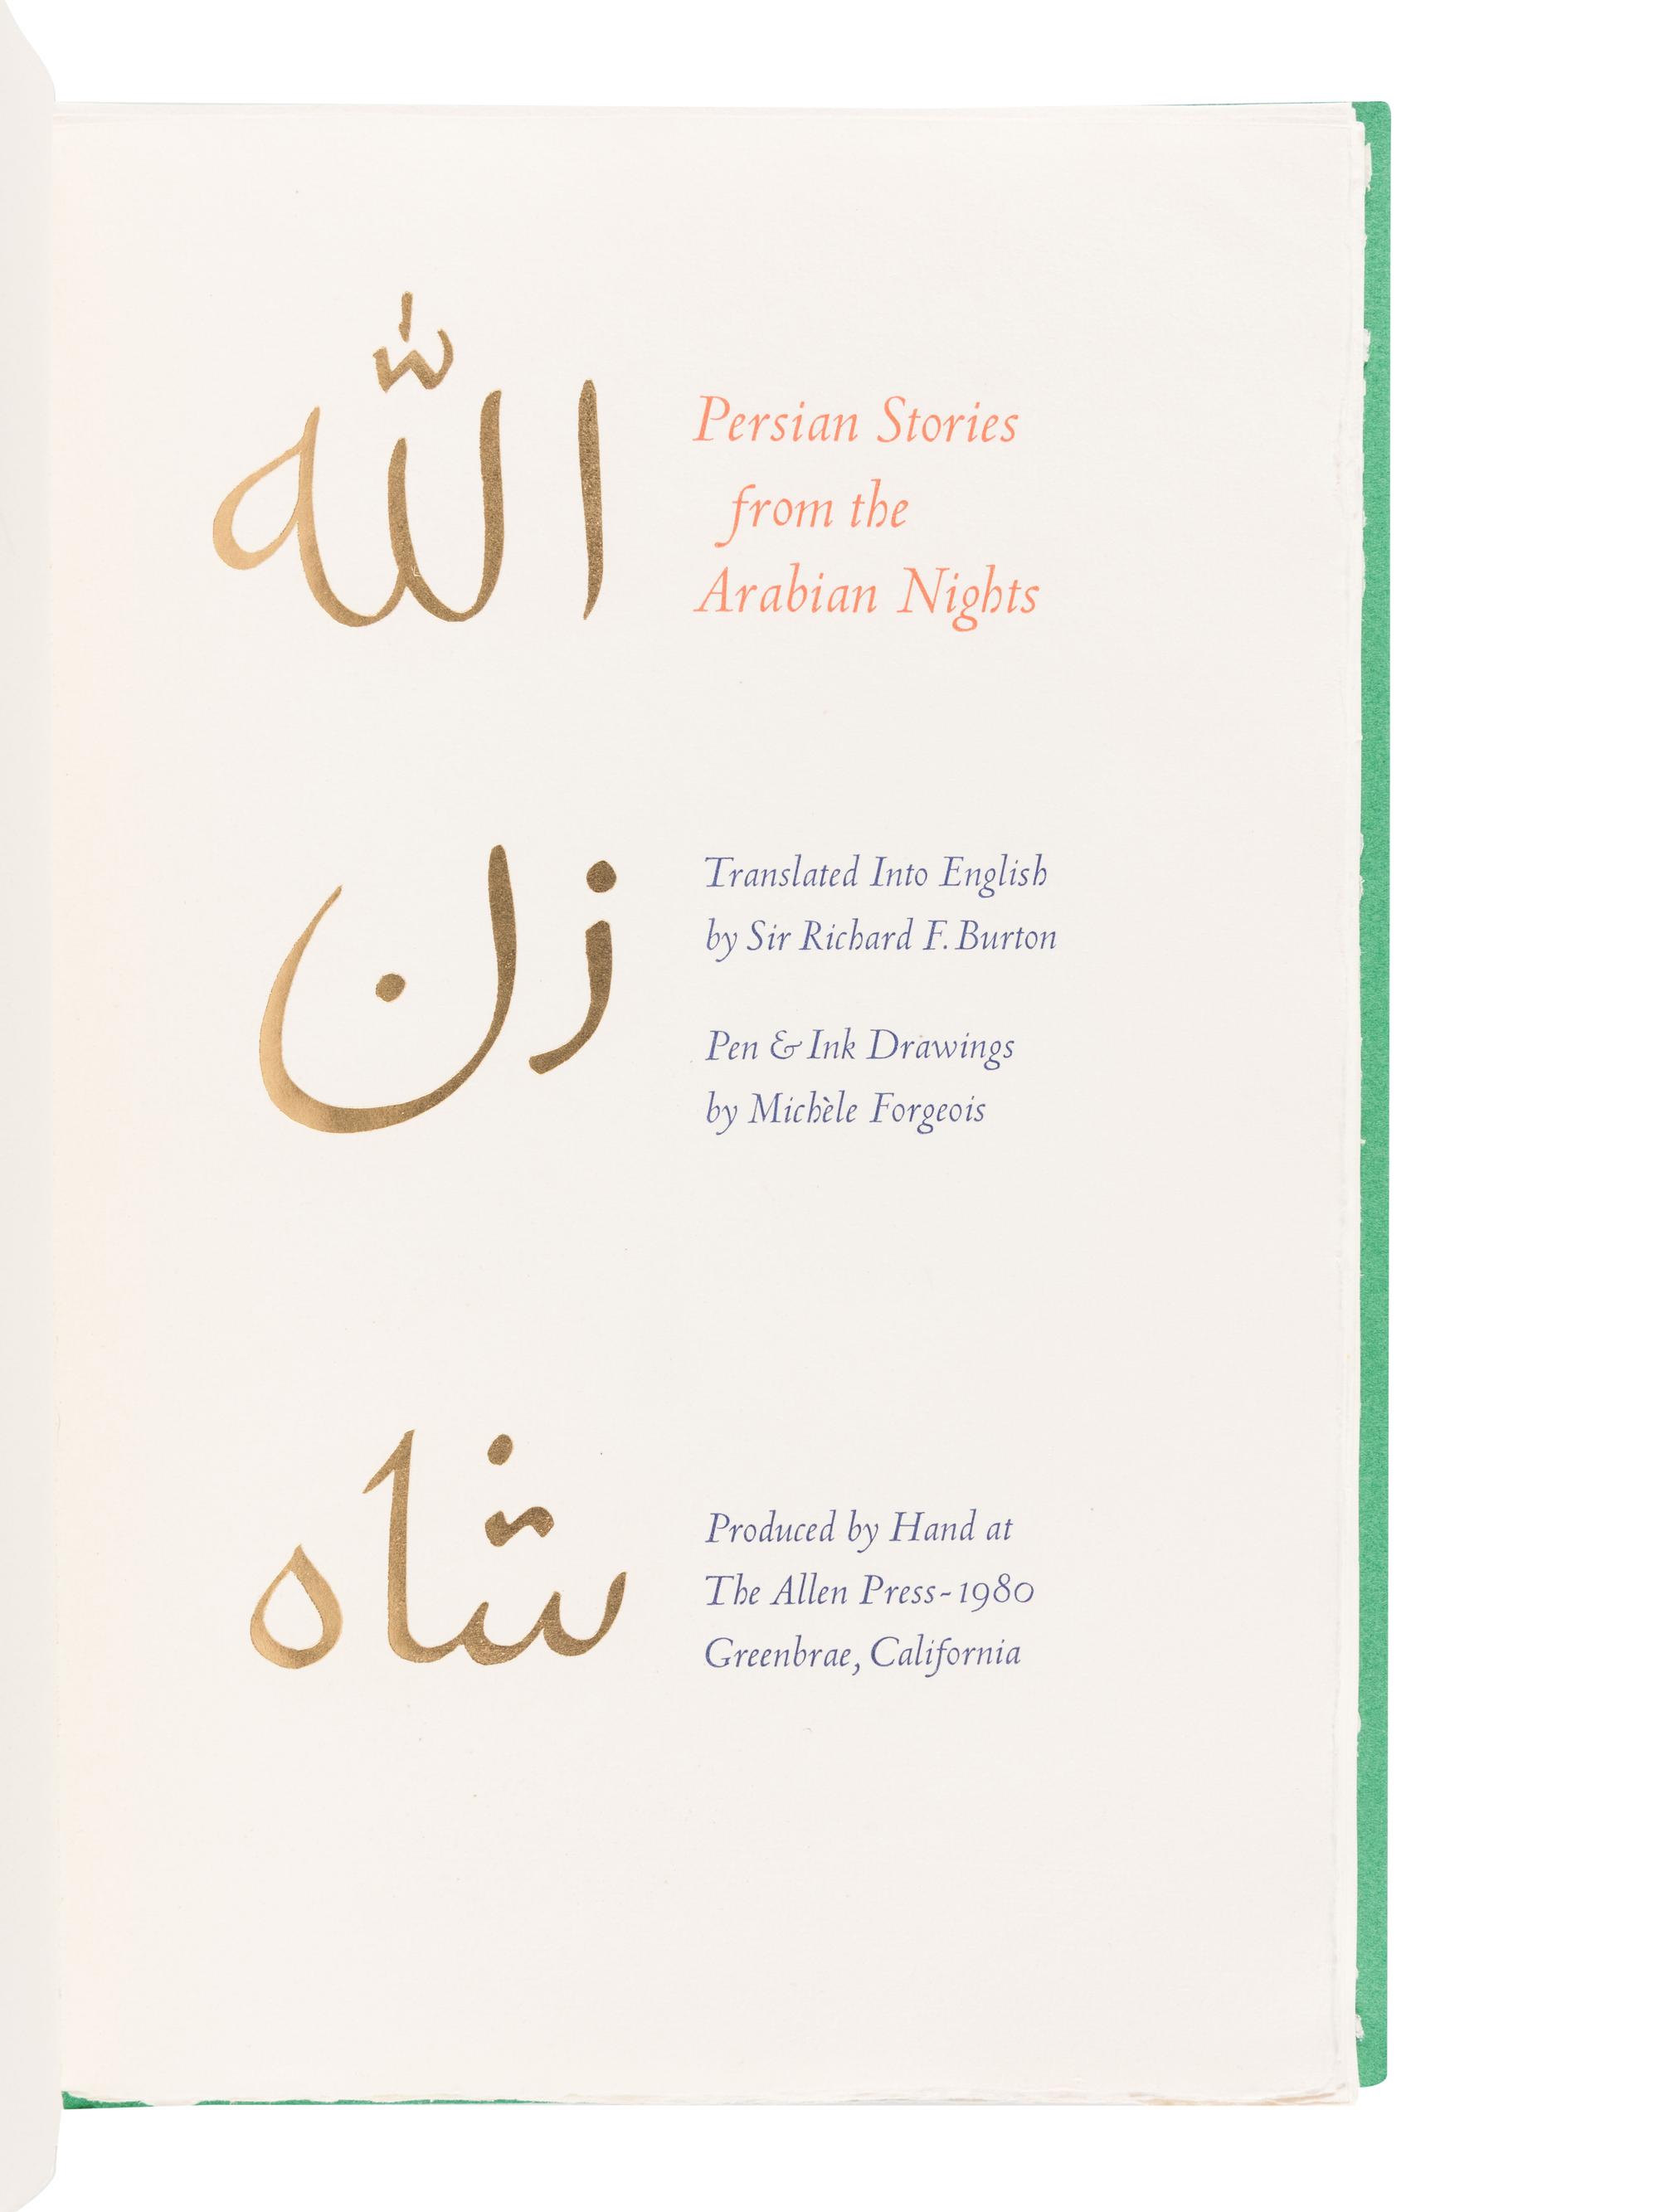 الله
Persian Stories
from the
Arabian Nights
زن
Translated Into English
by Sir Richard F. Burton
Pen & Ink Drawings
by Michèle Forgeois
شاه
Produced by Hand at
The Allen Press - 1980
Greenbrae, California